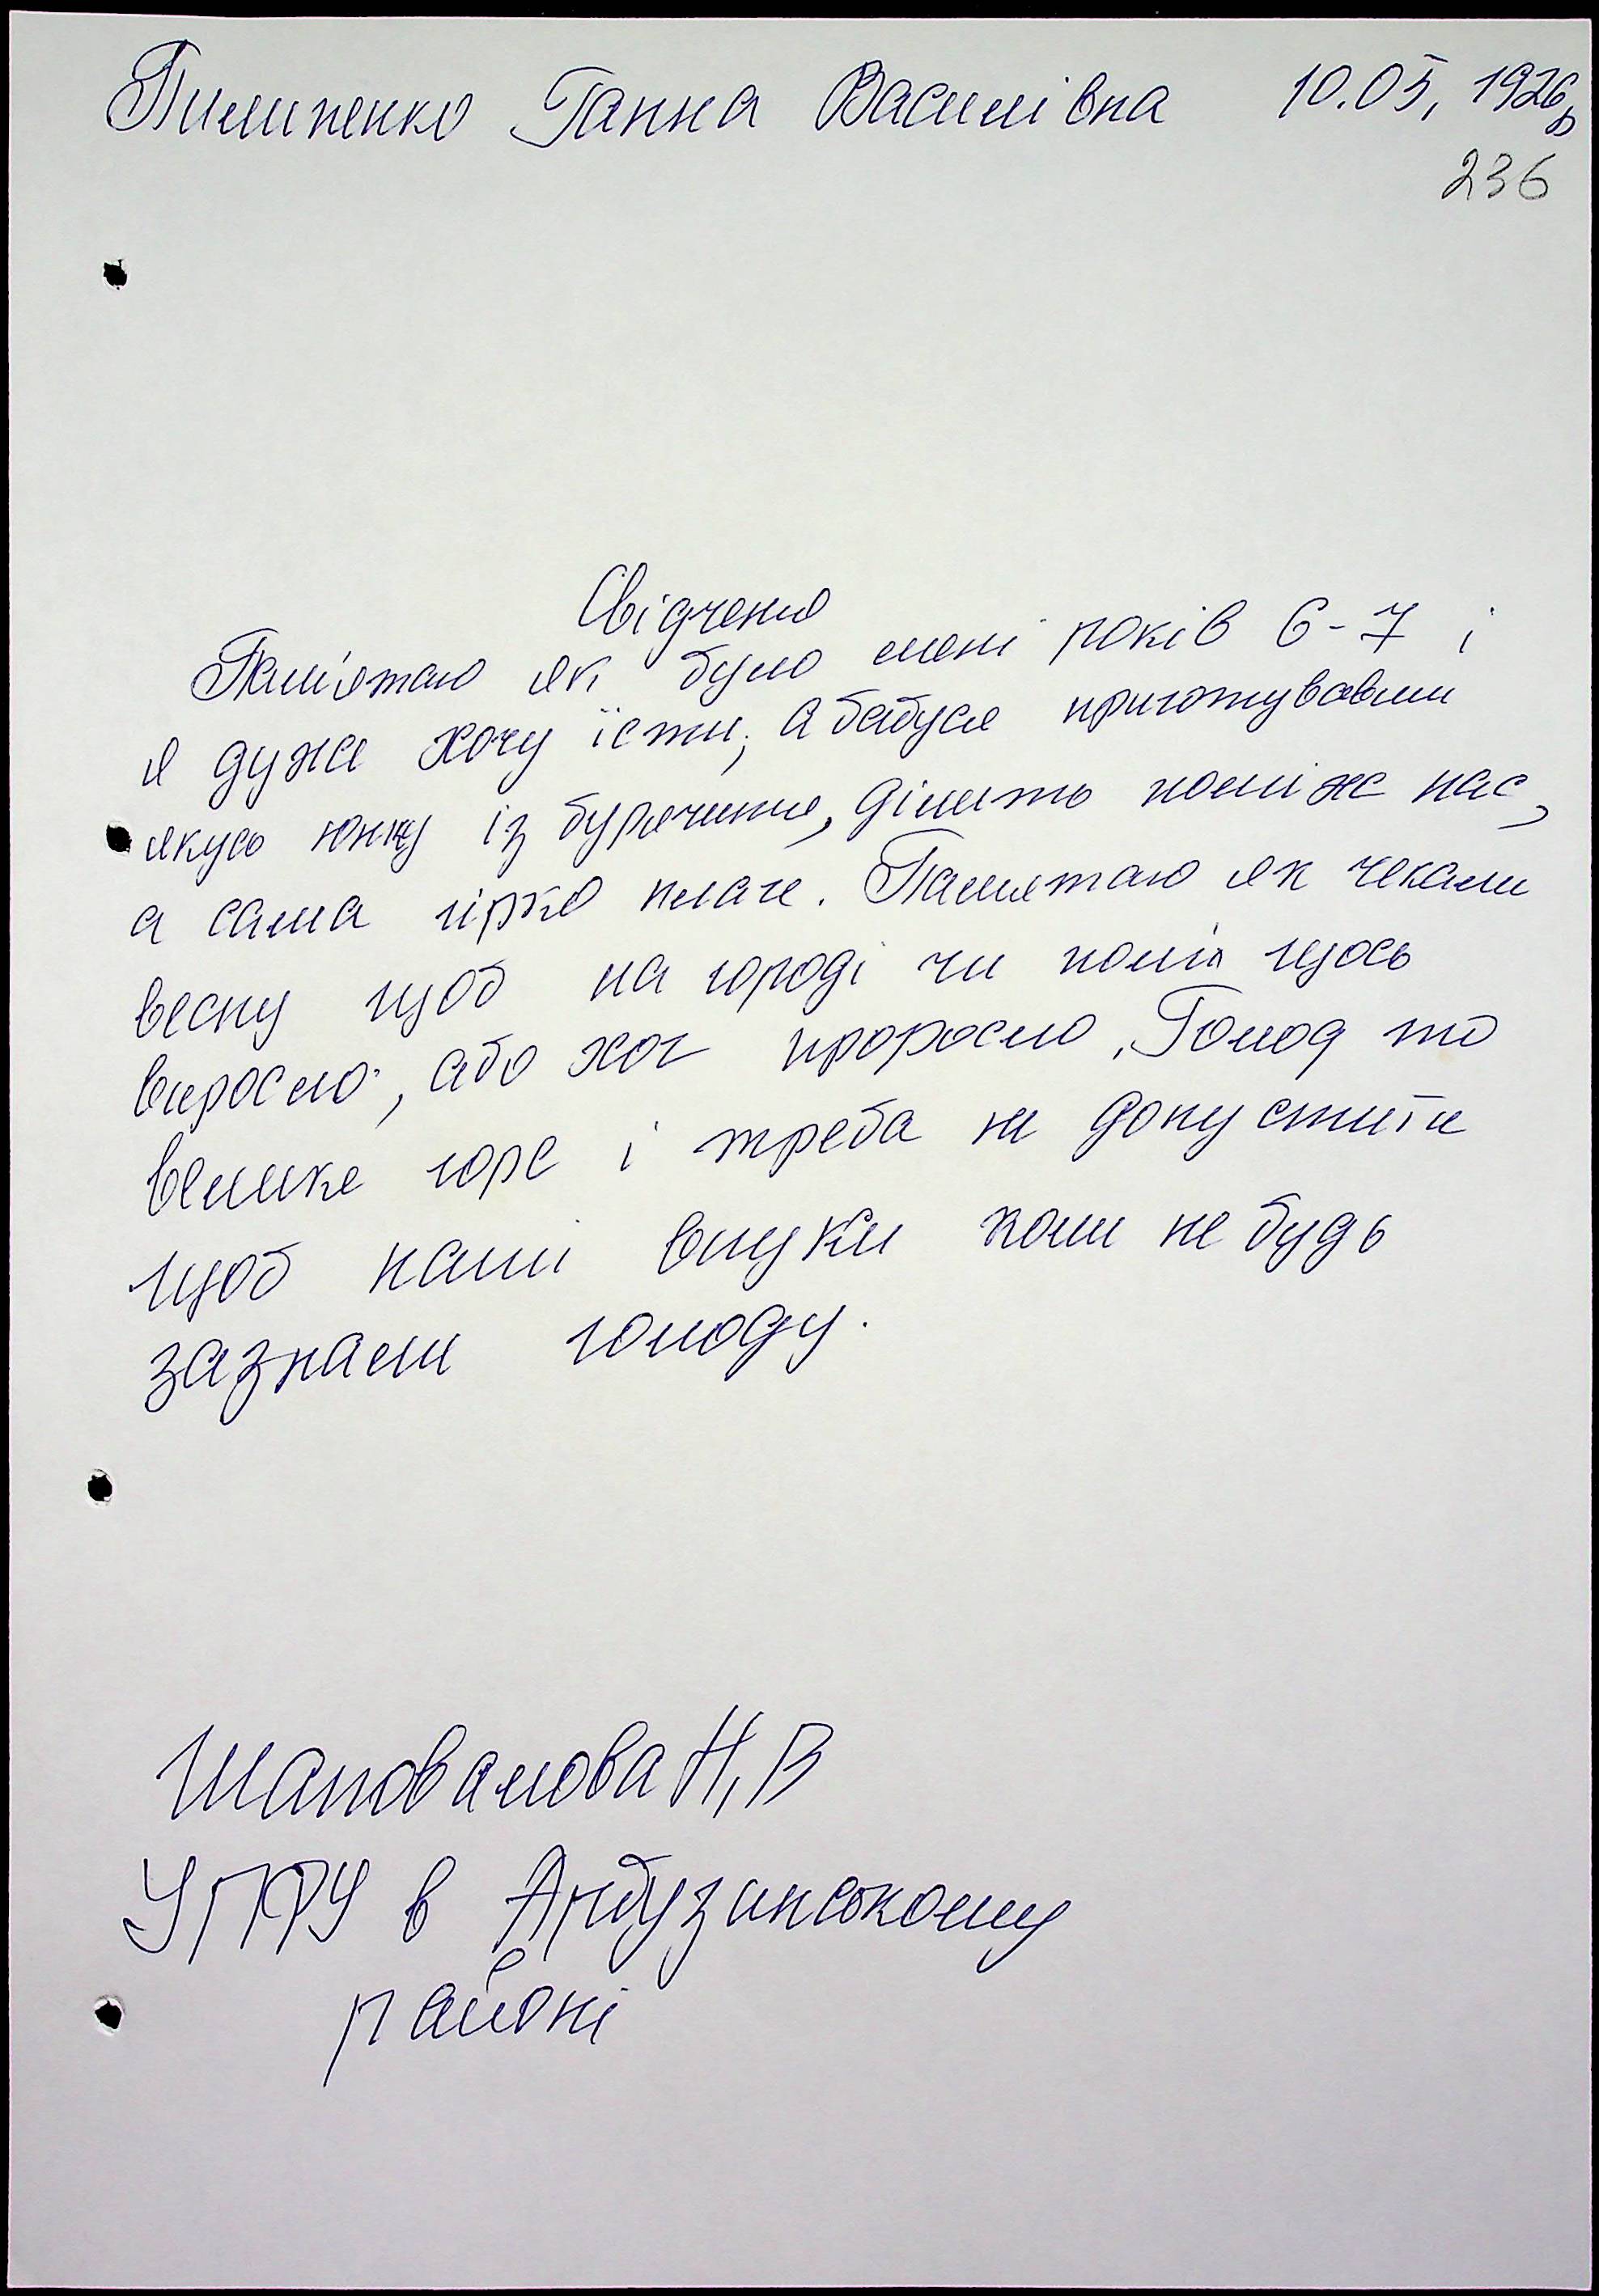 Пилипенко Ганна Василівна 10.05, 1926р
236
Свідчення
Пам'ятаю як було мені років 6-7 і
я дуже хочу їсти, а бабуся приготувавши
якусь юшку із бурячиння, ділить поміж нас,
а сама гірко плаче. Памятаю як чекали
весну щоб на городі чи полі щось
виросло, або хоч проросло. Голод то
велике горе і треба не допустити
щоб наші внуки коли не будь
зазнали голоду.
Шаповалова Н,В
УПФУ в Арбузинському
районі